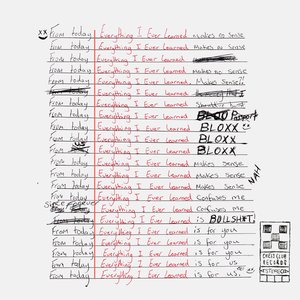 From today Everything I Ever Learned makes no sense
From today Everything I Ever Learned Makes no Sense
From today Everything I Ever Learned
From today Everything I Ever Learned makes no sense
From today Everything I Ever Learned. Makes Sense??
Everything I Ever Learned
From today Everything I Ever Learned Should
From today Everything I Ever Learned BLOXX
From today Everything I Ever Learned BLOXX
From today Everything I Ever Learned BLOXX
From Everything I Ever Learned BLOXX
From today Everything I Ever Learned Makes Sense
From today Everything I Ever Learned Makes Sense
From today Everything I Ever Learned Makes Sense
From today Everything I Ever Learned Confuses me
From today Everything I Ever Learned Confuses me
Everything I Ever Learned is BOLLSH*T.
From today Everything I Ever Learned is for you
From today Everything I Ever Learned is for you
From today Everything I Ever Learned is for you
From today Everything I Ever Learned is for us
From today Everything I Ever Learned is for us!
CHESS CLUB
RECORDS